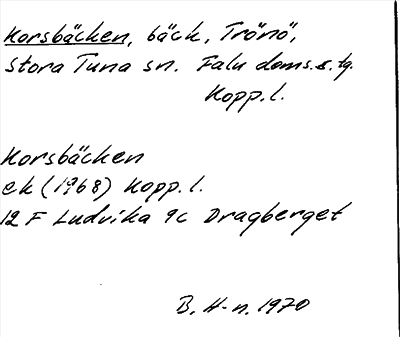 Korsbäcken, bäck, Trönö,
Stora Tuna sn. Falu doms.s. tg.
Kopp.l.
Korsbäcken
ek (1968) Kopp.l.
12 F Ludvika 9c Dragberget
B. H-n. 1970